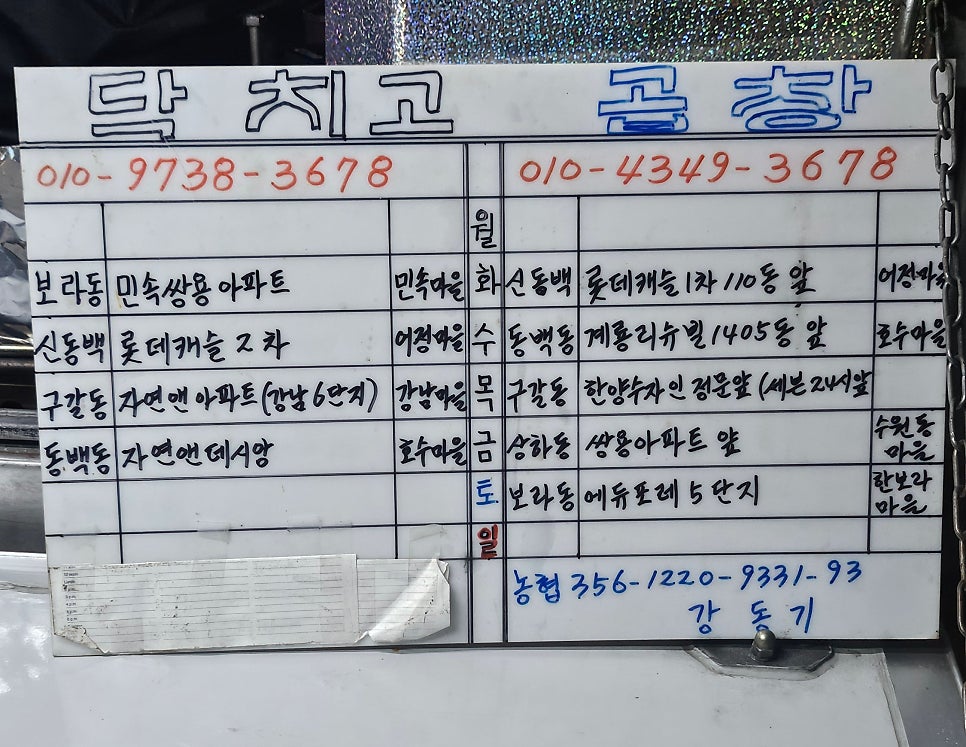 닥치고 곱창
010-9738-3678 010-4349-3678
월
보라동 민속쌍용아파트 민속마을 화 신동백 롯데캐슬1차 110동 앞 어정마을
신동백 롯데캐슬 2차 어정마을 수 동백동 계룡리슈빌 1405동 앞 호수마을
구갈동 자연앤아파트(강남6단지) 강남마을 목 구갈동 한양수자인 정문앞 (세븐24시앞
동백동 자연앤데시앙 호수마을 금 상하동 쌍용아파트 앞 수원동마을
토 보라동 에듀포레 5단지 한보라마을
일
농협 356-1220-9331-93
강동기